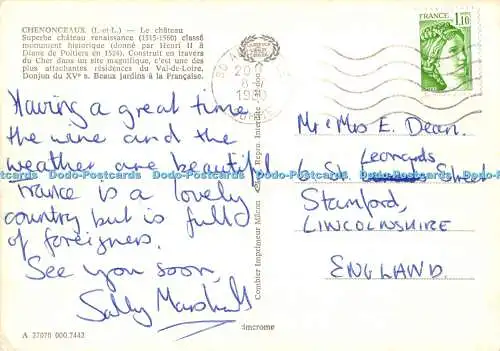 CHENONCEAUX (I.-et-L.) — Le château
Superbe château renaissance (1515-1560) classé
monument historique (donné par Henri II à
Diane de Poitiers en 1524). Construit en travers
du Cher dans un site magnifique, c'est une des
plus attachantes résidences du Val-de-Loire.
Donjon du XVᵉ s. Beaux jardins à la Française.
FRANCE
1,10
Having a great time
the wine and the
weather are beautiful
France is a lovely
country but is full
of foreigners.
See you soon,
Sally Marshall
Combier Imprimeur Mâcon
Repro. Interdite
Mr & Mrs E. Dean.
6 St Leonards Street
Stamford,
LINCOLNSHIRE
ENGLAND.
A 37070 000.7442
Dodo-Postcards Dodo-Postcards Dodo-Postcards Dodo-Postcards